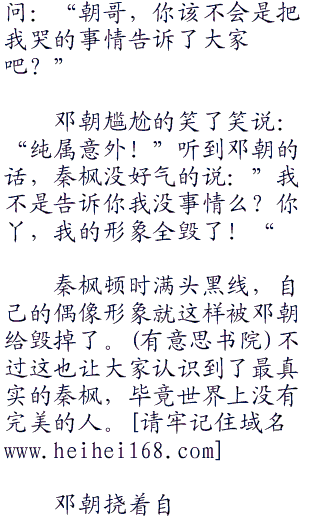 问：“朝哥，你该不会是把
我哭的事情告诉了大家
吧？”
邓朝尴尬的笑了笑说：
“纯属意外！”听到邓朝的
话，秦枫没好气的说：”我
不是告诉你我没事情么？你
丫，我的形象全毁了！“
秦枫顿时满头黑线，自
己的偶像形象就这样被邓朝
给毁掉了。(有意思书院)不
过这也让大家认识到了最真
实的秦枫，毕竟世界上没有
完美的人。[请牢记住域名
www.heihei168.com]
邓朝挠着自